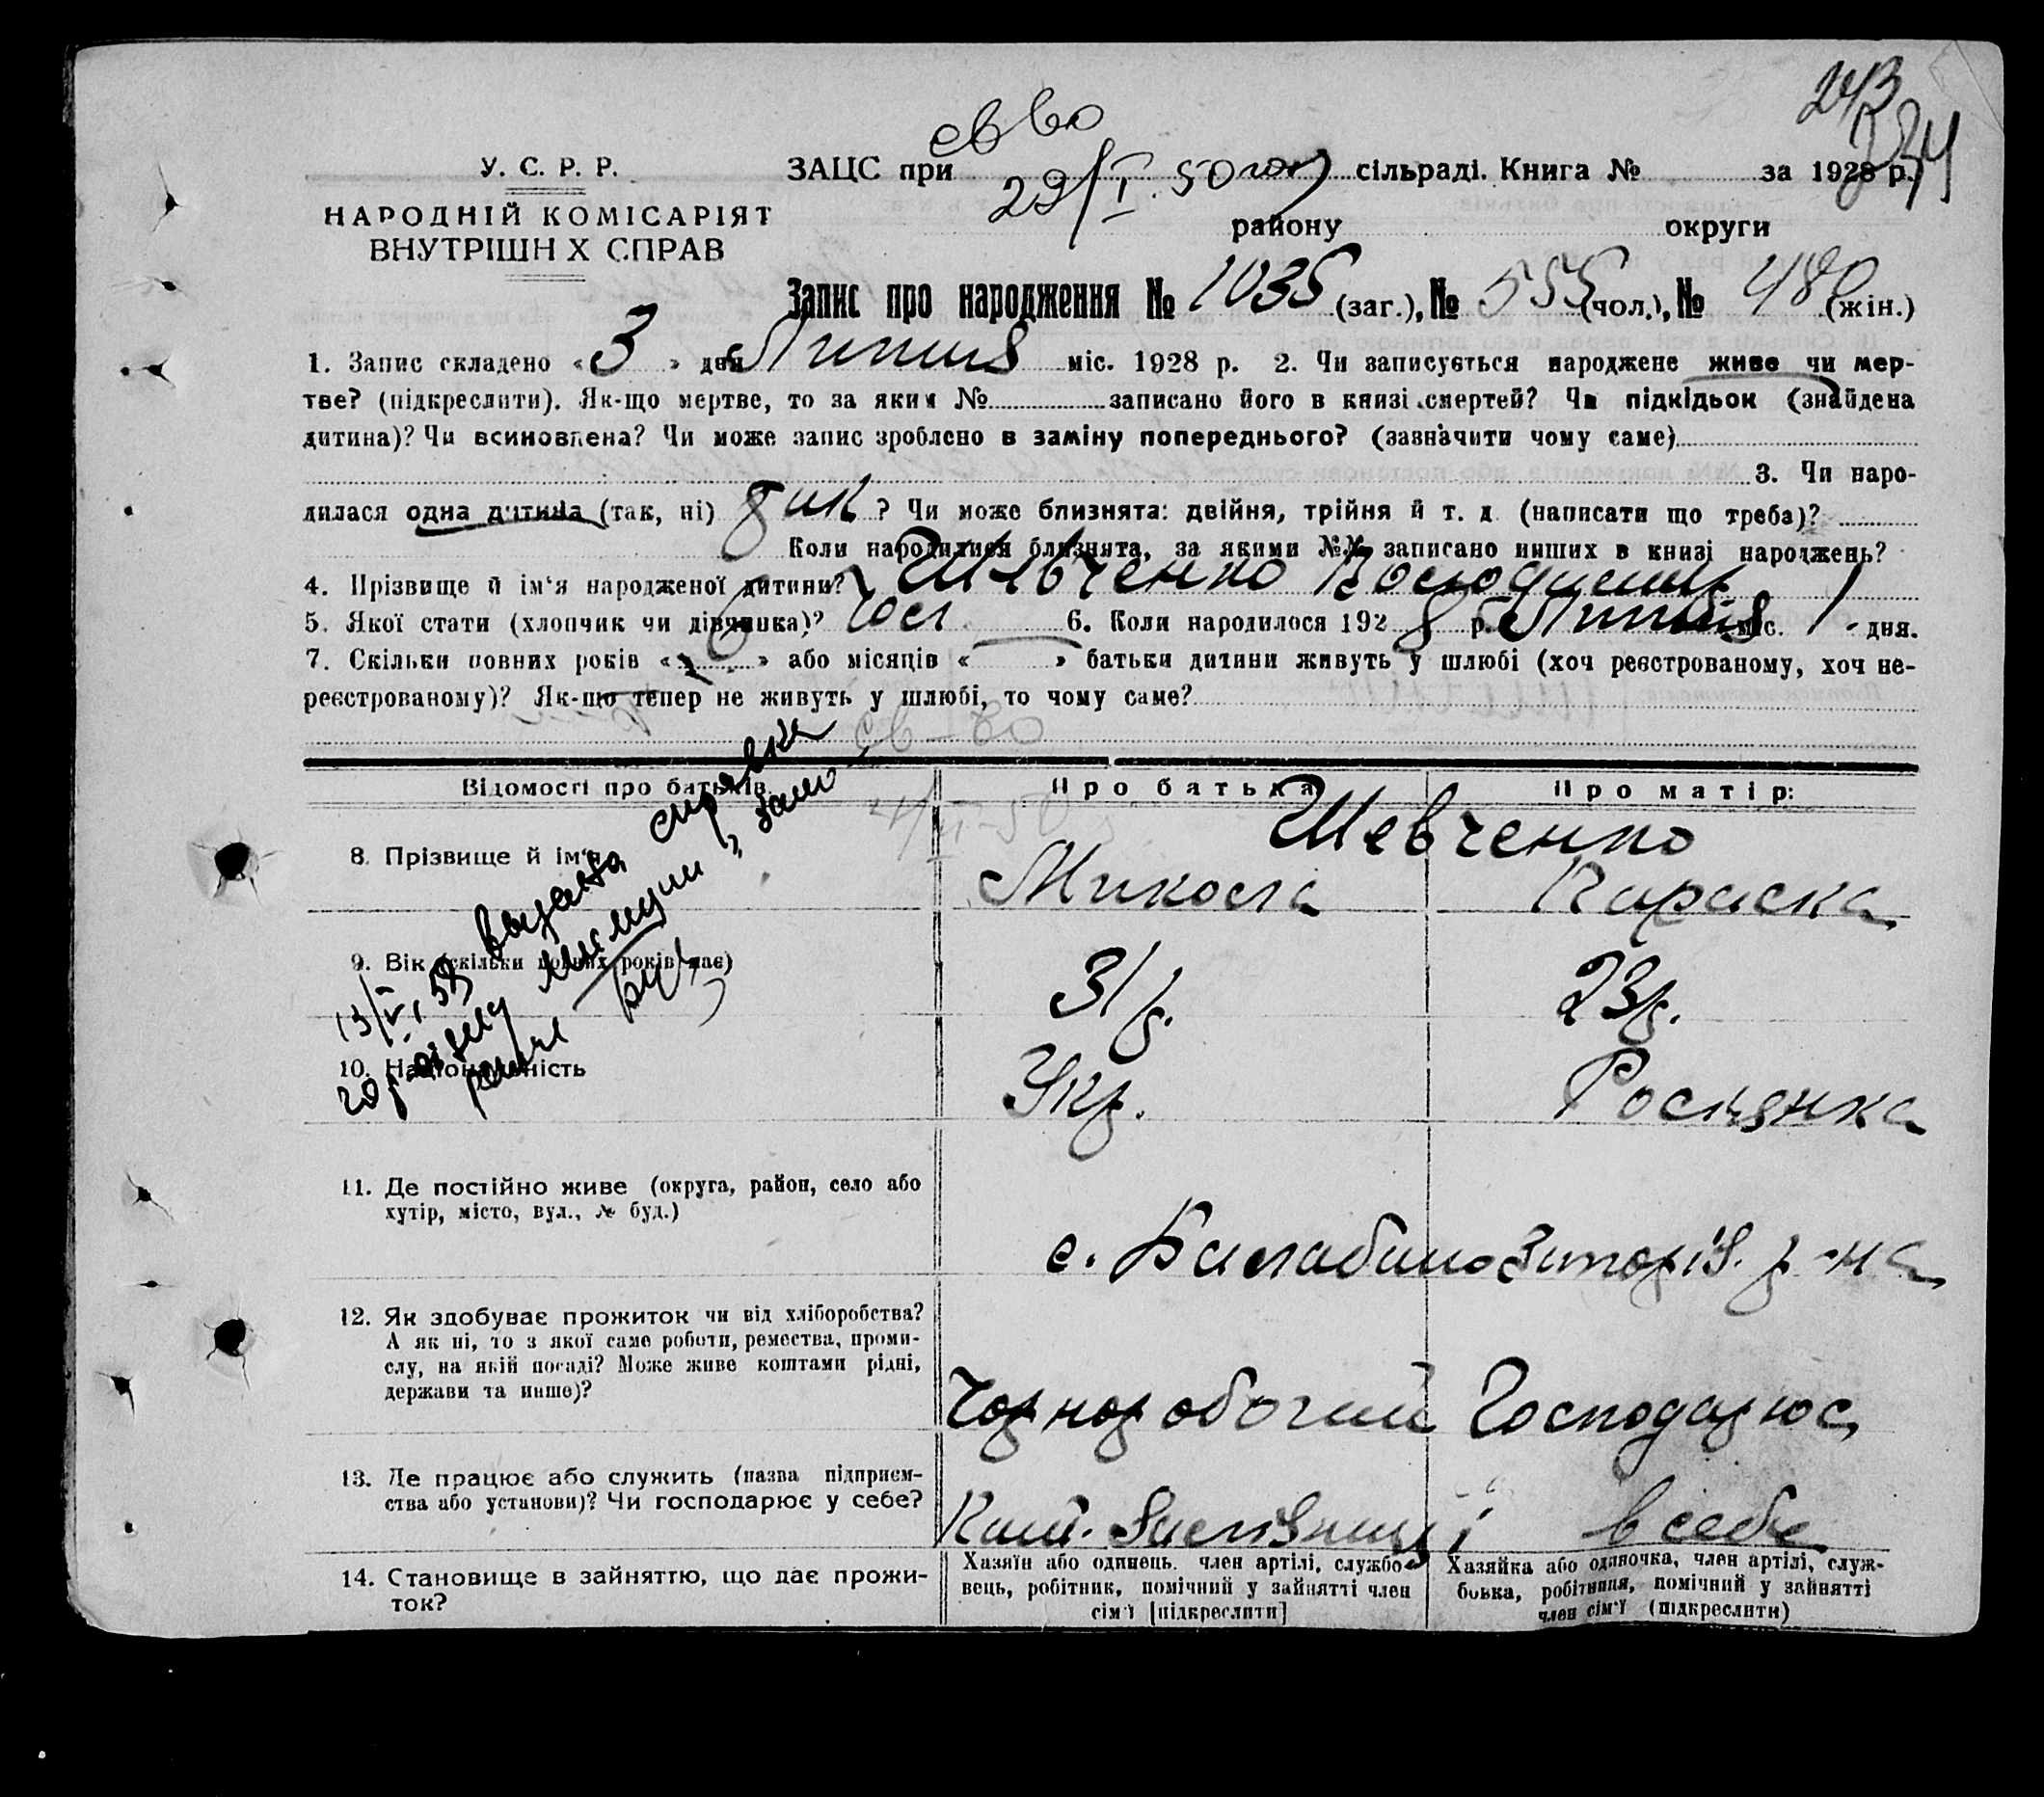 243
234
св во
У. С. Р. Р.
ЗАЦС при сільраді. Книга № за 1928 р.
29/I 50
НАРОДНІЙ КОМІСАРІЯТ
ВНУТРІШН Х СПРАВ
району округи
Запис про народження № 1035 (заг.), № 555 (чол.), № 480 (жін.)
1. Запис складено « 3 » дня Липня міс. 1928 р. 2. Чи записується народжене живе чи мер-
тве? (підкреслити). Як-що мертве, то за яким № записано його в книзі смертей? Чи підкідьок (знайдена
дитина)? Чи всиновлена? Чи може запис зроблено в заміну попереднього? (зазначити чому саме)
3. Чи наро-
дилася одна дитина (так, ні) так ? Чи може близнята: двійня, трійня й т. д. (написати що треба)?
Коли народилися близнята, за якими №№ записано инших в книзі народжень?
4. Прізвище й ім'я народженої дитини? Шевченко Володимир
5. Якої стати (хлопчик чи дівчинка)? Чол. 6. Коли народилося 1928 р. Липня міс. 1 дня.
7. Скільки повних років « » або місяців « » батьки дитини живуть у шлюбі (хоч реєстрованому, хоч не-
реєстрованому)? Як-що тепер не живуть у шлюбі, то чому саме?
св-во
4/II-50
Відомості про батьків Про батька Про матір:
8. Прізвище й ім'я Шевченко
Микола Параска
9. Вік (скільки повних років має) 31р. 23р.
13/VI, 59 выдана справка
10. Національність Укр. Росіянка
11. Де постійно живе (округа, район, село або
хутір, місто, вул., № буд.)
с. Балабино Запоріз. р-на
12. Як здобуває прожиток чи від хліборобства?
А як ні, то з якої саме роботи, ремества, проми-
слу, на якій посаді? Може живе коштами рідні,
держави та инше)?
Чорноробочий Господарює
13. Де працює або служить (назва підприєм-
ства або установи)? Чи господарює у себе?
Залізниці в себе
14. Становище в зайняттю, що дає прожи-
ток?
Хазяїн або одинець. член артілі, службо-
вець, робітник, помічний у зайнятті член
сім'ї [підкреслити]
Хазяйка або одиночка, член артілі, служ-
бовка, робітниця, помічний у зайнятті
член сім'ї (підкреслити)